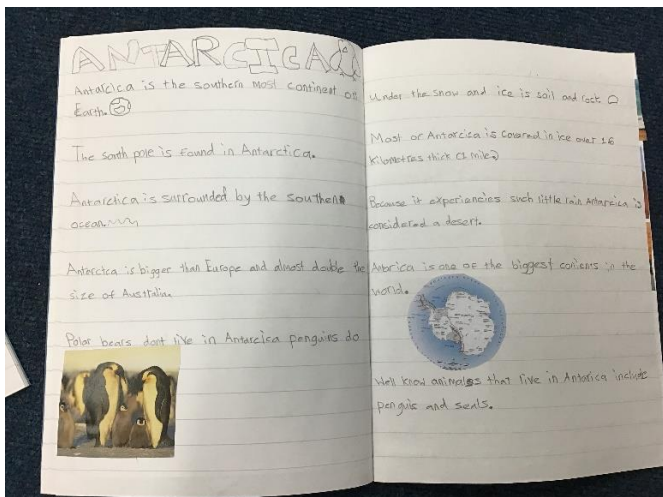 ANTARCICA
Antarcica is the southern most continent on
Earth.
The south pole is found in Antarctica.
Antarctica is surrounded by the southern
ocean
Antercica is bigger than Europe and almost double the
size of Australia.
Polar bears dont live in Antarcica penguins do
Under the snow and ice is soil and rock.
Most or Antarcica is covered in ice over 1.6
Kilometres thick (1 mile)
Because it experiencies such little rain Antarcica is
considered a desert.
Antarica is one of the biggest contients in the
world.
Well know animals that live in Antarica include
penguis and seals.